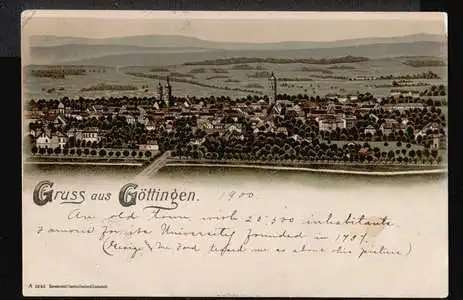 Gruss aus Göttingen. 1900.
An old Town with 25,500 inhabitants
Famous for its University founded in 1737.
(George the told me so about this picture)